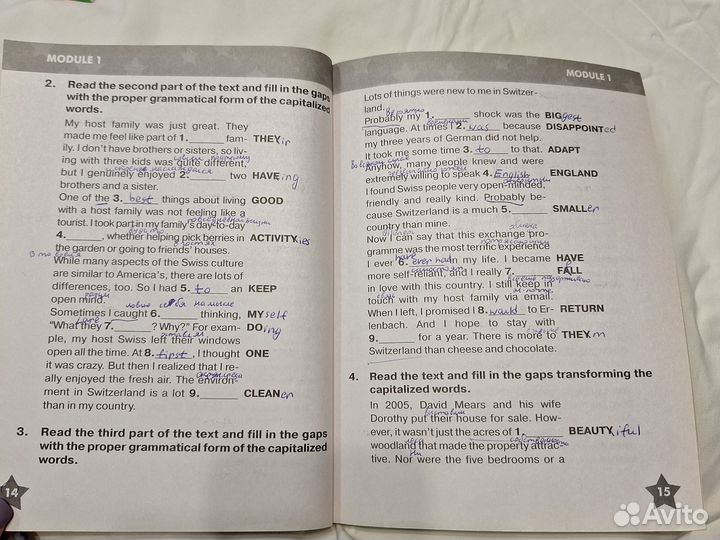 MODULE 1
2. Read the second part of the text and fill in the gaps
with the proper grammatical form of the capitalized
words.
My host family was just great. They
made me feel like part of 1. fam- THEYir
ily. I don't have brothers or sisters, so liv-
ing with three kids was quite different,
but I genuinely enjoyed 2. two HAVEing
brothers and a sister.
One of the 3. best things about living GOOD
with a host family was not feeling like a
tourist. I took part in my family's day-to-day
4. , whether helping pick berries in ACTIVITYies
the garden or going to friends' houses.
While many aspects of the Swiss culture
are similar to America's, there are lots of
differences, too. So I had 5. to an KEEP
open mind.
Sometimes I caught 6. thinking, MYself
"What they 7. ? Why?" For exam- DOing
ple, my host Swiss left their windows
open all the time. At 8. first, I thought ONE
it was crazy. But then I realized that I re-
ally enjoyed the fresh air. The environ-
ment in Switzerland is a lot 9. CLEANer
than in my country.
3. Read the third part of the text and fill in the gaps
with the proper grammatical form of the capitalized
words.
14
MODULE 1
Lots of things were new to me in Switzer-
land.
вероятно
Probably my 1. shock was the BIGgest
language. At times I 2. was because DISAPPOINTed
my three years of German did not help.
It took me some time 3. to to that. ADAPT
Anyhow, many people knew and were
extremely willing to speak 4. English ENGLAND
I found Swiss people very open-minded,
friendly and really kind. Probably be-
cause Switzerland is a much 5. SMALLer
country than mine.
Now I can say that this exchange pro-
gramme was the most terrific experience
have
I ever 6. ever had in my life. I became HAVE
more self-reliant, and I really 7. FALL
in love with this country. I still keep in
touch with my host family via email.
When I left, I promised I 8. would to Er- RETURN
lenbach. And I hope to stay with
9. for a year. There is more to THEYm
Switzerland than cheese and chocolate.
4. Read the text and fill in the gaps transforming the
capitalized words.
In 2005, David Mears and his wife
Dorothy put their house for sale. How-
ever, it wasn't just the acres of 1. BEAUTYiful
woodland that made the property attrac-
tive. Nor were the five bedrooms or a
15
Avito